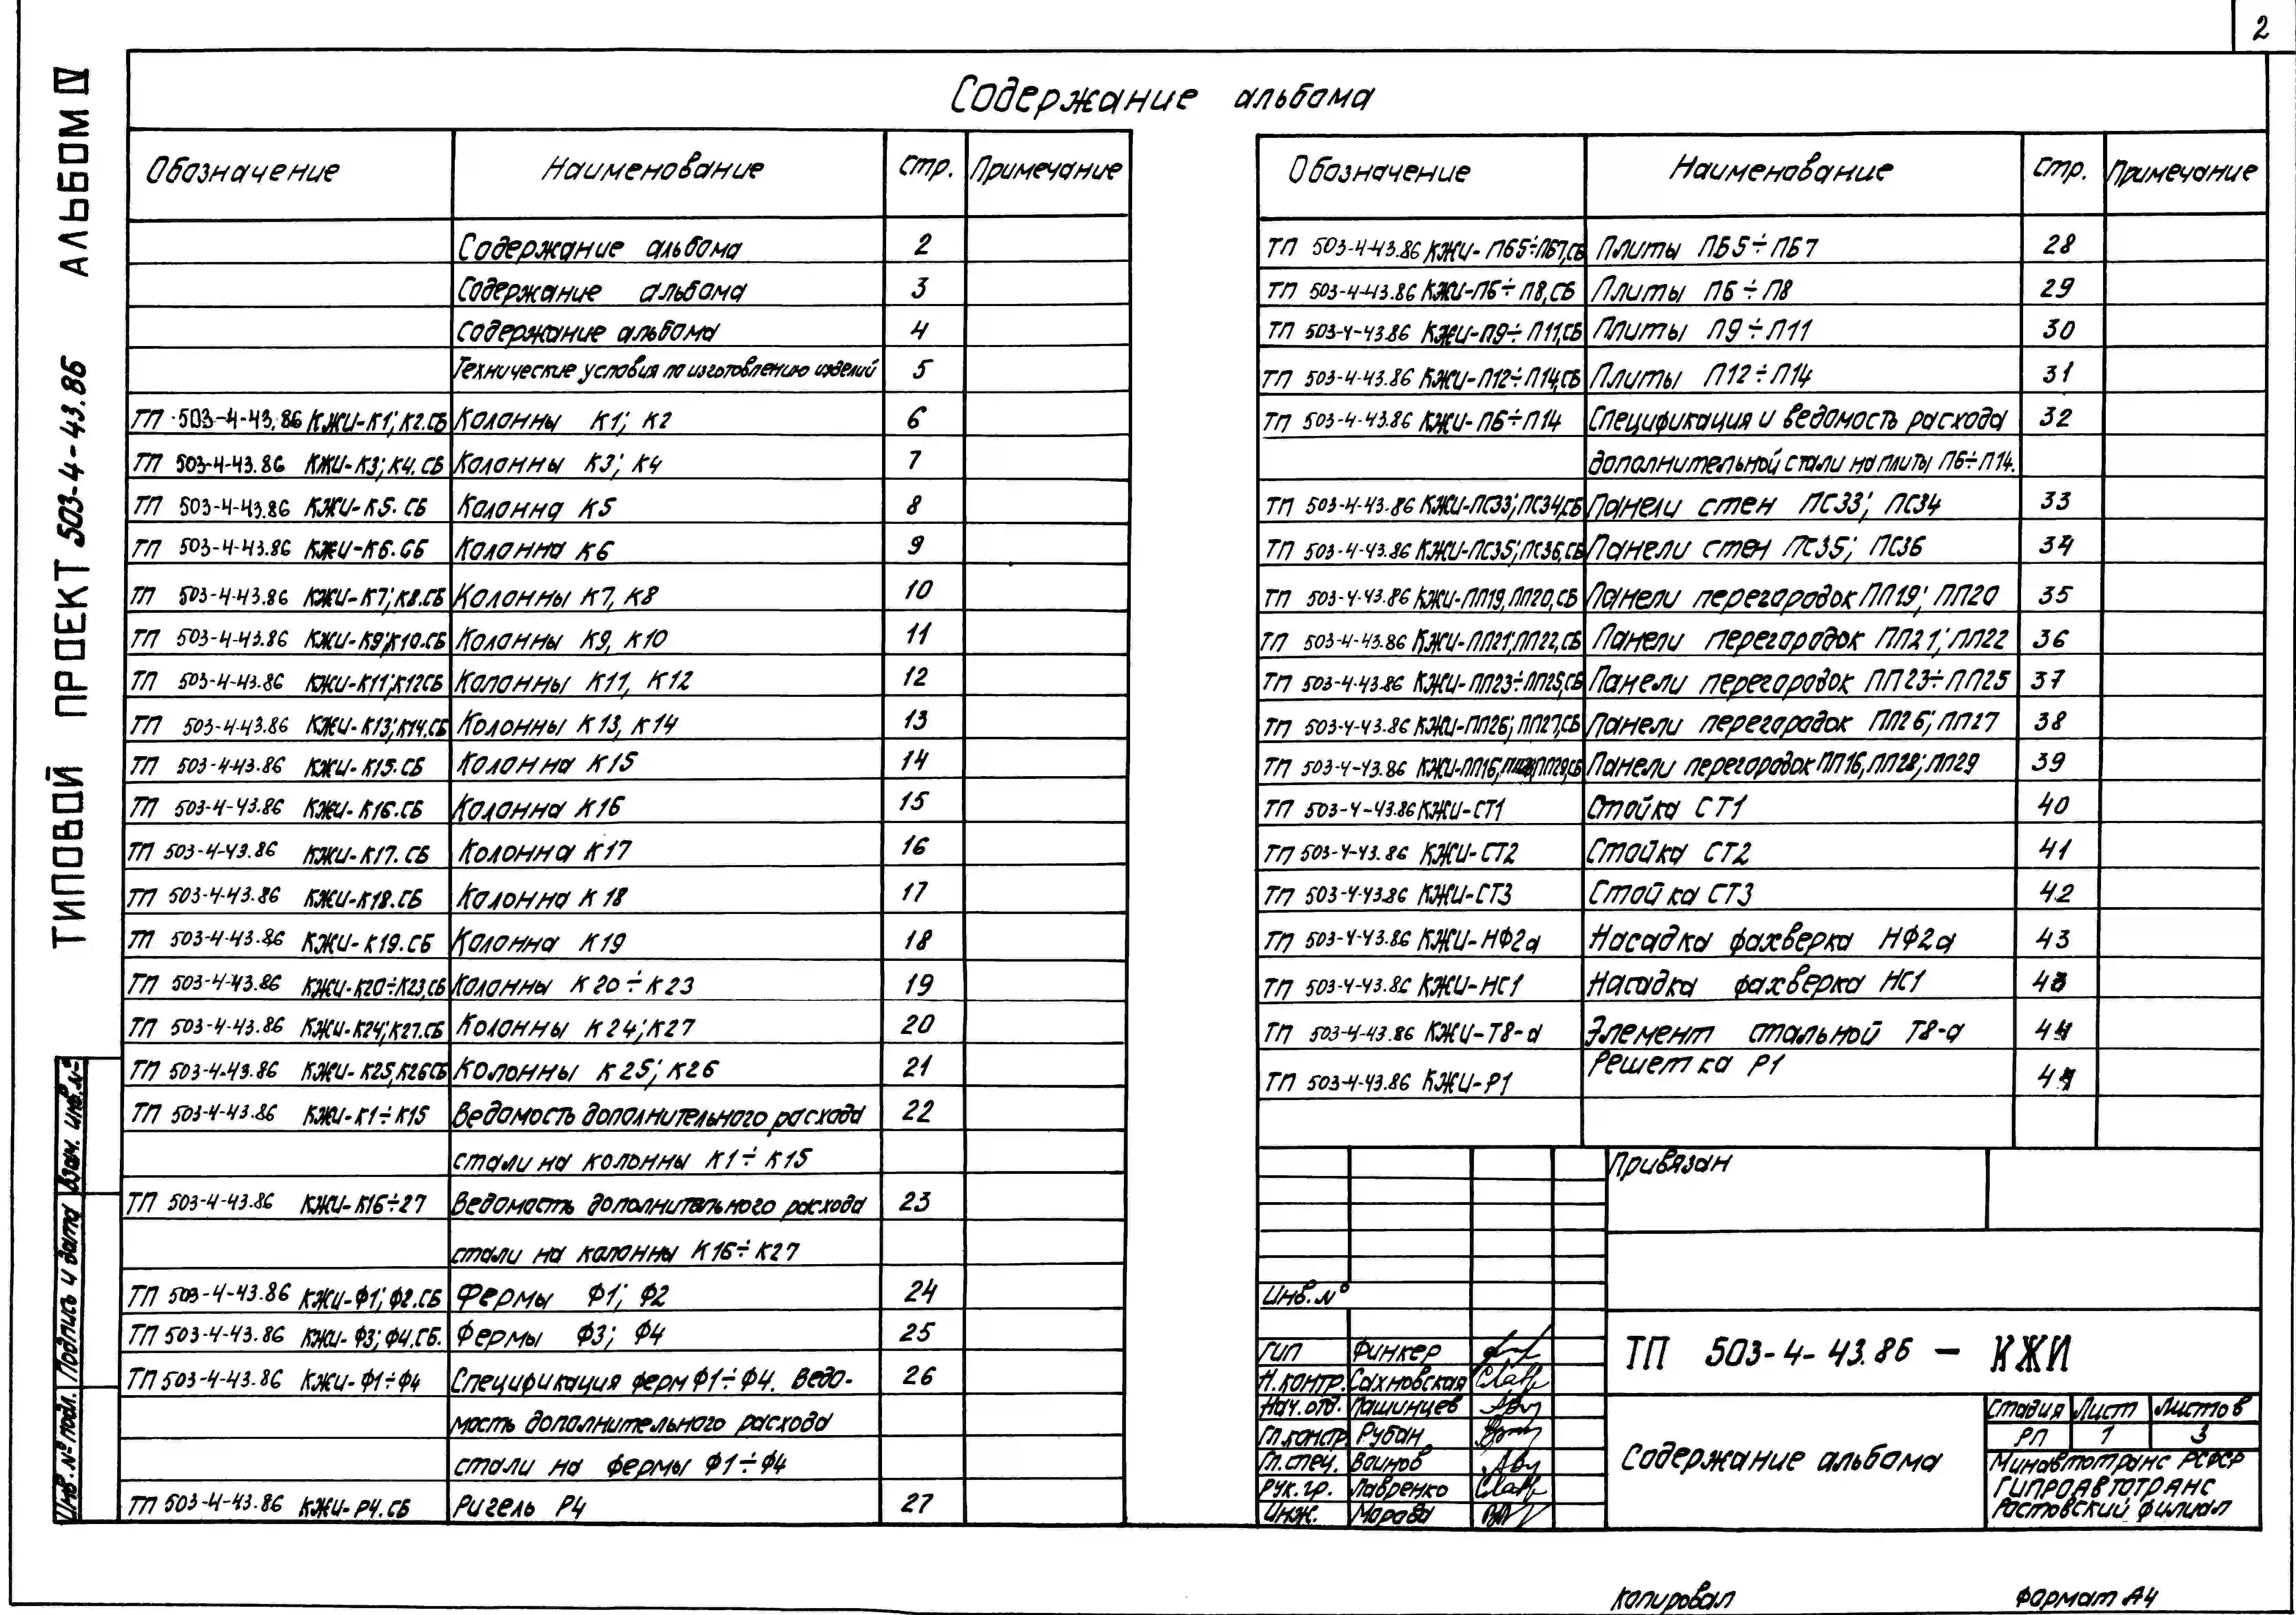 2
ТИПОВОЙ ПРОЕКТ 503-4-43.86 АЛЬБОМ IV
Содержание альбома
Обозначение Наименование стр. Примечание
Содержание альбома 2
Содержание альбома 3
Содержание альбома 4
Технические условия по изготовлению изделий 5
ТП 503-4-43.86 КЖИ-К1; К2.СБ Колонны К1; К2 6
ТП 503-4-43.86 КЖИ-К3; К4.СБ Колонны К3; К4 7
ТП 503-4-43.86 КЖИ-К5.СБ Колонна К5 8
ТП 503-4-43.86 КЖИ-К6.СБ Колонна К6 9
ТП 503-4-43.86 КЖИ-К7; К8.СБ Колонны К7, К8 10
ТП 503-4-43.86 КЖИ-К9; К10.СБ Колонны К9, К10 11
ТП 503-4-43.86 КЖИ-К11; К12СБ Колонны К11, К12 12
ТП 503-4-43.86 КЖИ-К13; К14.СБ Колонны К13, К14 13
ТП 503-4-43.86 КЖИ-К15.СБ Колонна К15 14
ТП 503-4-43.86 КЖИ-К16.СБ Колонна К16 15
ТП 503-4-43.86 КЖИ-К17.СБ Колонна К17 16
ТП 503-4-43.86 КЖИ-К18.СБ Колонна К18 17
ТП 503-4-43.86 КЖИ-К19.СБ Колонна К19 18
ТП 503-4-43.86 КЖИ-К20÷К23,СБ Колонны К20÷К23 19
ТП 503-4-43.86 КЖИ-К24; К27.СБ Колонны К24; К27 20
ТП 503-4-43.86 КЖИ-К25, К26СБ Колонны К25; К26 21
ТП 503-4-43.86 КЖИ-К1÷К15 Ведомость дополнительного расхода 22
стали на колонны К1÷К15
ТП 503-4-43.86 КЖИ-К16÷27 Ведомость дополнительного расхода 23
стали на колонны К16÷К27
ТП 503-4-43.86 КЖИ-Ф1; Ф2.СБ Фермы Ф1; Ф2 24
ТП 503-4-43.86 КЖИ-Ф3; Ф4.СБ. Фермы Ф3; Ф4 25
ТП 503-4-43.86 КЖИ-Ф1÷Ф4 Спецификация ферм Ф1÷Ф4. Ведо- 26
мость дополнительного расхода
стали на фермы Ф1÷Ф4
ТП 503-4-43.86 КЖИ-Р4.СБ Ригель Р4 27
Обозначение Наименование стр. Примечание
ТП 503-4-43.86 КЖИ-ПБ5÷ПБ7,СБ Плиты ПБ5÷ПБ7 28
ТП 503-4-43.86 КЖИ-П6÷П8,СБ Плиты П6÷П8 29
ТП 503-4-43.86 КЖИ-П9÷П11,СБ Плиты П9÷П11 30
ТП 503-4-43.86 КЖИ-П12÷П14,СБ Плиты П12÷П14 31
ТП 503-4-43.86 КЖИ-П6÷П14 Спецификация и ведомость расхода 32
дополнительной стали на плиты П6÷П14.
ТП 503-4-43.86 КЖИ-ПС33; ПС34,СБ Панели стен ПС33; ПС34 33
ТП 503-4-43.86 КЖИ-ПС35; ПС36,СБ Панели стен ПС35; ПС36 34
ТП 503-4-43.86 КЖИ-ПП19, ПП20,СБ Панели перегородок ПП19; ПП20 35
ТП 503-4-43.86 КЖИ-ПП21; ПП22,СБ Панели перегородок ПП21; ПП22 36
ТП 503-4-43.86 КЖИ-ПП23÷ПП25,СБ Панели перегородок ПП23÷ПП25 37
ТП 503-4-43.86 КЖИ-ПП26; ПП27,СБ Панели перегородок ПП26; ПП27 38
ТП 503-4-43.86 КЖИ-ПП16, ПП29,СБ Панели перегородок ПП16, ПП28; ПП29 39
ТП 503-4-43.86 КЖИ-СТ1 Стойка СТ1 40
ТП 503-4-43.86 КЖИ-СТ2 Стойка СТ2 41
ТП 503-4-43.86 КЖИ-СТ3 Стойка СТ3 42
ТП 503-4-43.86 КЖИ-НФ2а Насадка фахверка НФ2а 43
ТП 503-4-43.86 КЖИ-НС1 Насадка фахверка НС1 43
ТП 503-4-43.86 КЖИ-Т8-а Элемент стальной Т8-а 44
ТП 503-4-43.86 КЖИ-Р1 Решетка Р1 44
Привязан
Инв.№
ГИП Финкер
Н.контр. Сахновская
Нач.отд. Пашинцев
Гл.констр. Рубан
Гл.спец. Воинов
Рук.гр. Лавренко
Инж. Морова
ТП 503-4-43.86 - КЖИ
Содержание альбома
Стадия Лист Листов
РП 1 3
Минавтотранс РСФСР
ГИПРОАВТОТРАНС
Ростовский филиал
Инв.№ подл. Подпись и дата Взам. инв.№
Копировал Формат А4